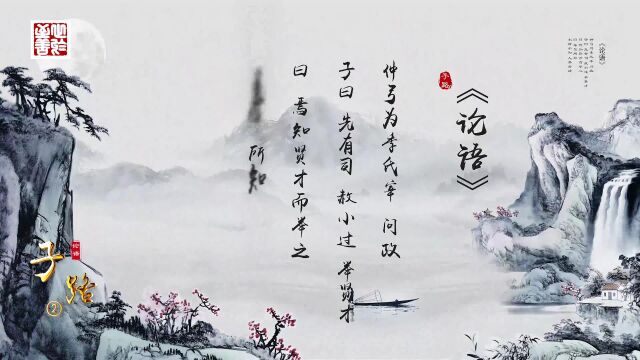 《论语》
子路
仲弓为季氏宰 问政
子曰 先有司 赦小过 举贤才
曰 焉知贤才而举之
所知
论语
子路
②
《论语》